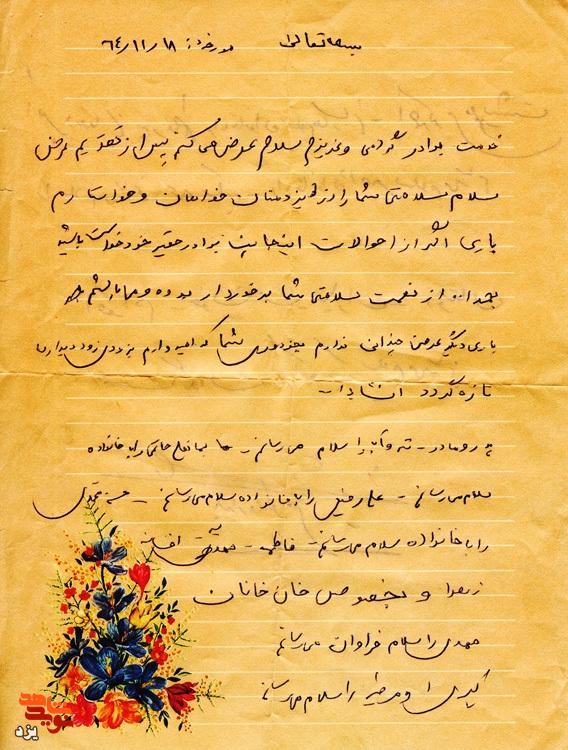 بسمه تعالی مورخه: ۶۴/۱۱/۱۸
خدمت برادر گرامی و عزیزم سلام عرض می کنم پس از تقدیم عرض
سلام سلامتی شما را از ایزد منان خواهان و خواستارم
باری اگر از احوالات اینجانب برادر حقیر خود خواسته باشید
بحمدالله از نعمت سلامتی شما برخوردار بوده و می باشم
باری دیگر عرضی ندارم بجز دوری شما که امیدوارم بزودی زود دیدارها
تازه گردد انشاءالله
پدر و مادر سلام می رسانم را با خانواده
سلام می رسانم علی را با خانواده سلام می رسانم
را با خانواده سلام می رسانم فاطمه
زهرا و بخصوص خان خانان
مهدی را سلام فراوان می رسانم
کبری و را سلام می رسانم
یزد